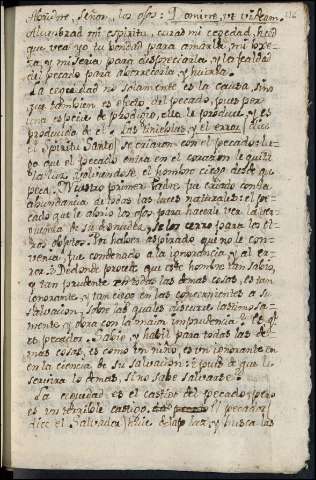 Abridme, Señor, los ojos: Domine, ut videam. 116
Alumbrad mi espiritu, curad mi ceguedad, haced
que vea yo tu bondad para amarla, mi
y miseria para despreciarla, y la fealdad
del pecado para aborrecerla y huirla.
La ceguedad no solamente es la causa, sino
que tambien es efecto del pecado, pues por
una especie de prodigio, ella le produce, y es
producida de el. Las tinieblas, y el error (dice
el Espiritu Santo) se criaron con el pecado, lue
go que el pecado entra en el corazon le quita
la luz, volviendose el hombre ciego desde que
peca. Nuestro primer Padre fue criado con la
abundancia de todas las luces naturales: el pe
cado que le abrio los ojos para hacerle ver la ver
guenza de su desnudez, se los cerro para los o
tros objetos. Por haber aspirado a que no le con
venia, fue condenado a la ignorancia, y al er
ror. De donde procede que este hombre tan sabio,
y tan prudente en todas las demas cosas, es tan
ignorante, y tan ciego en las concernientes a su
salvacion, sobre las quales discurre lastimosa
mente, y obra con la maior imprudencia? es q.e
es pecador. Sabio, y habil para todas las de
mas cosas, es como un niño, es un ignorante en
en la ciencia de su salvacion: Y pues de que le
servira lo demas, si no sabe salvarse?
La ceguedad es el castigo del pecado, pero
es un terrible castigo. El pecador
dice el Salvador huie de la luz, y busca las